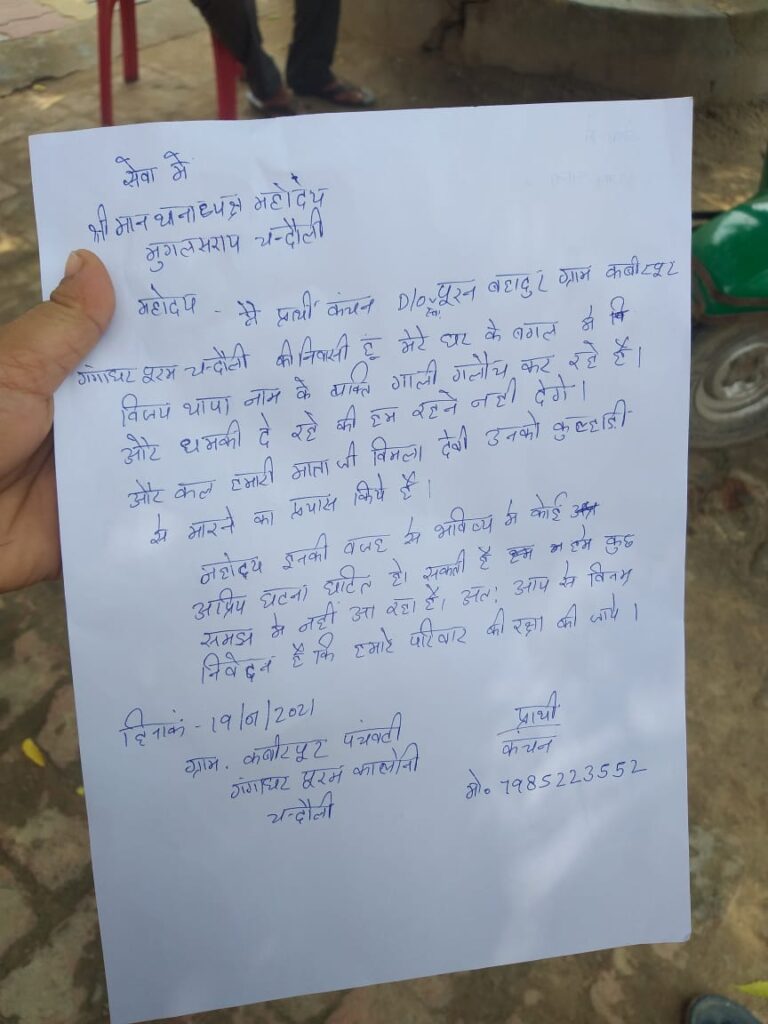 सेवा में
श्री मान थनाध्यक्ष महोदय
मुगलसराय चन्दौली
महोदय - मै प्रार्थी कंचन D/o स्व. पूरन बहादुर ग्राम कबीरपुर
गंगाधर पूरम चन्दौली की निवासी हूं मेरे घर के बगल मे
विजय थापा नाम के व्यक्ति गाली गलौच कर रहे है।
और धमकी दे रहे की हम रहने नही देगे।
और कल हमारी माता जी विमला देवी उनको कुल्हाड़ी
से मारने का प्रयास किये है।
महोदय इनकी वजह से भविष्य मे कोई
अप्रिय घटना घटित हो सकती है हमे कुछ
समझ मे नहीं आ रहा है। अतः आप से विनम्र
निवेदन है कि हमारे परिवार की रक्षा की जाये।
दिनाकं - 19/ /2021
ग्राम. कबीरपुर पंचवटी
गंगाधर पूरम कालोनी
चन्दौली
प्रार्थी
कंचन
मो० 7985223552